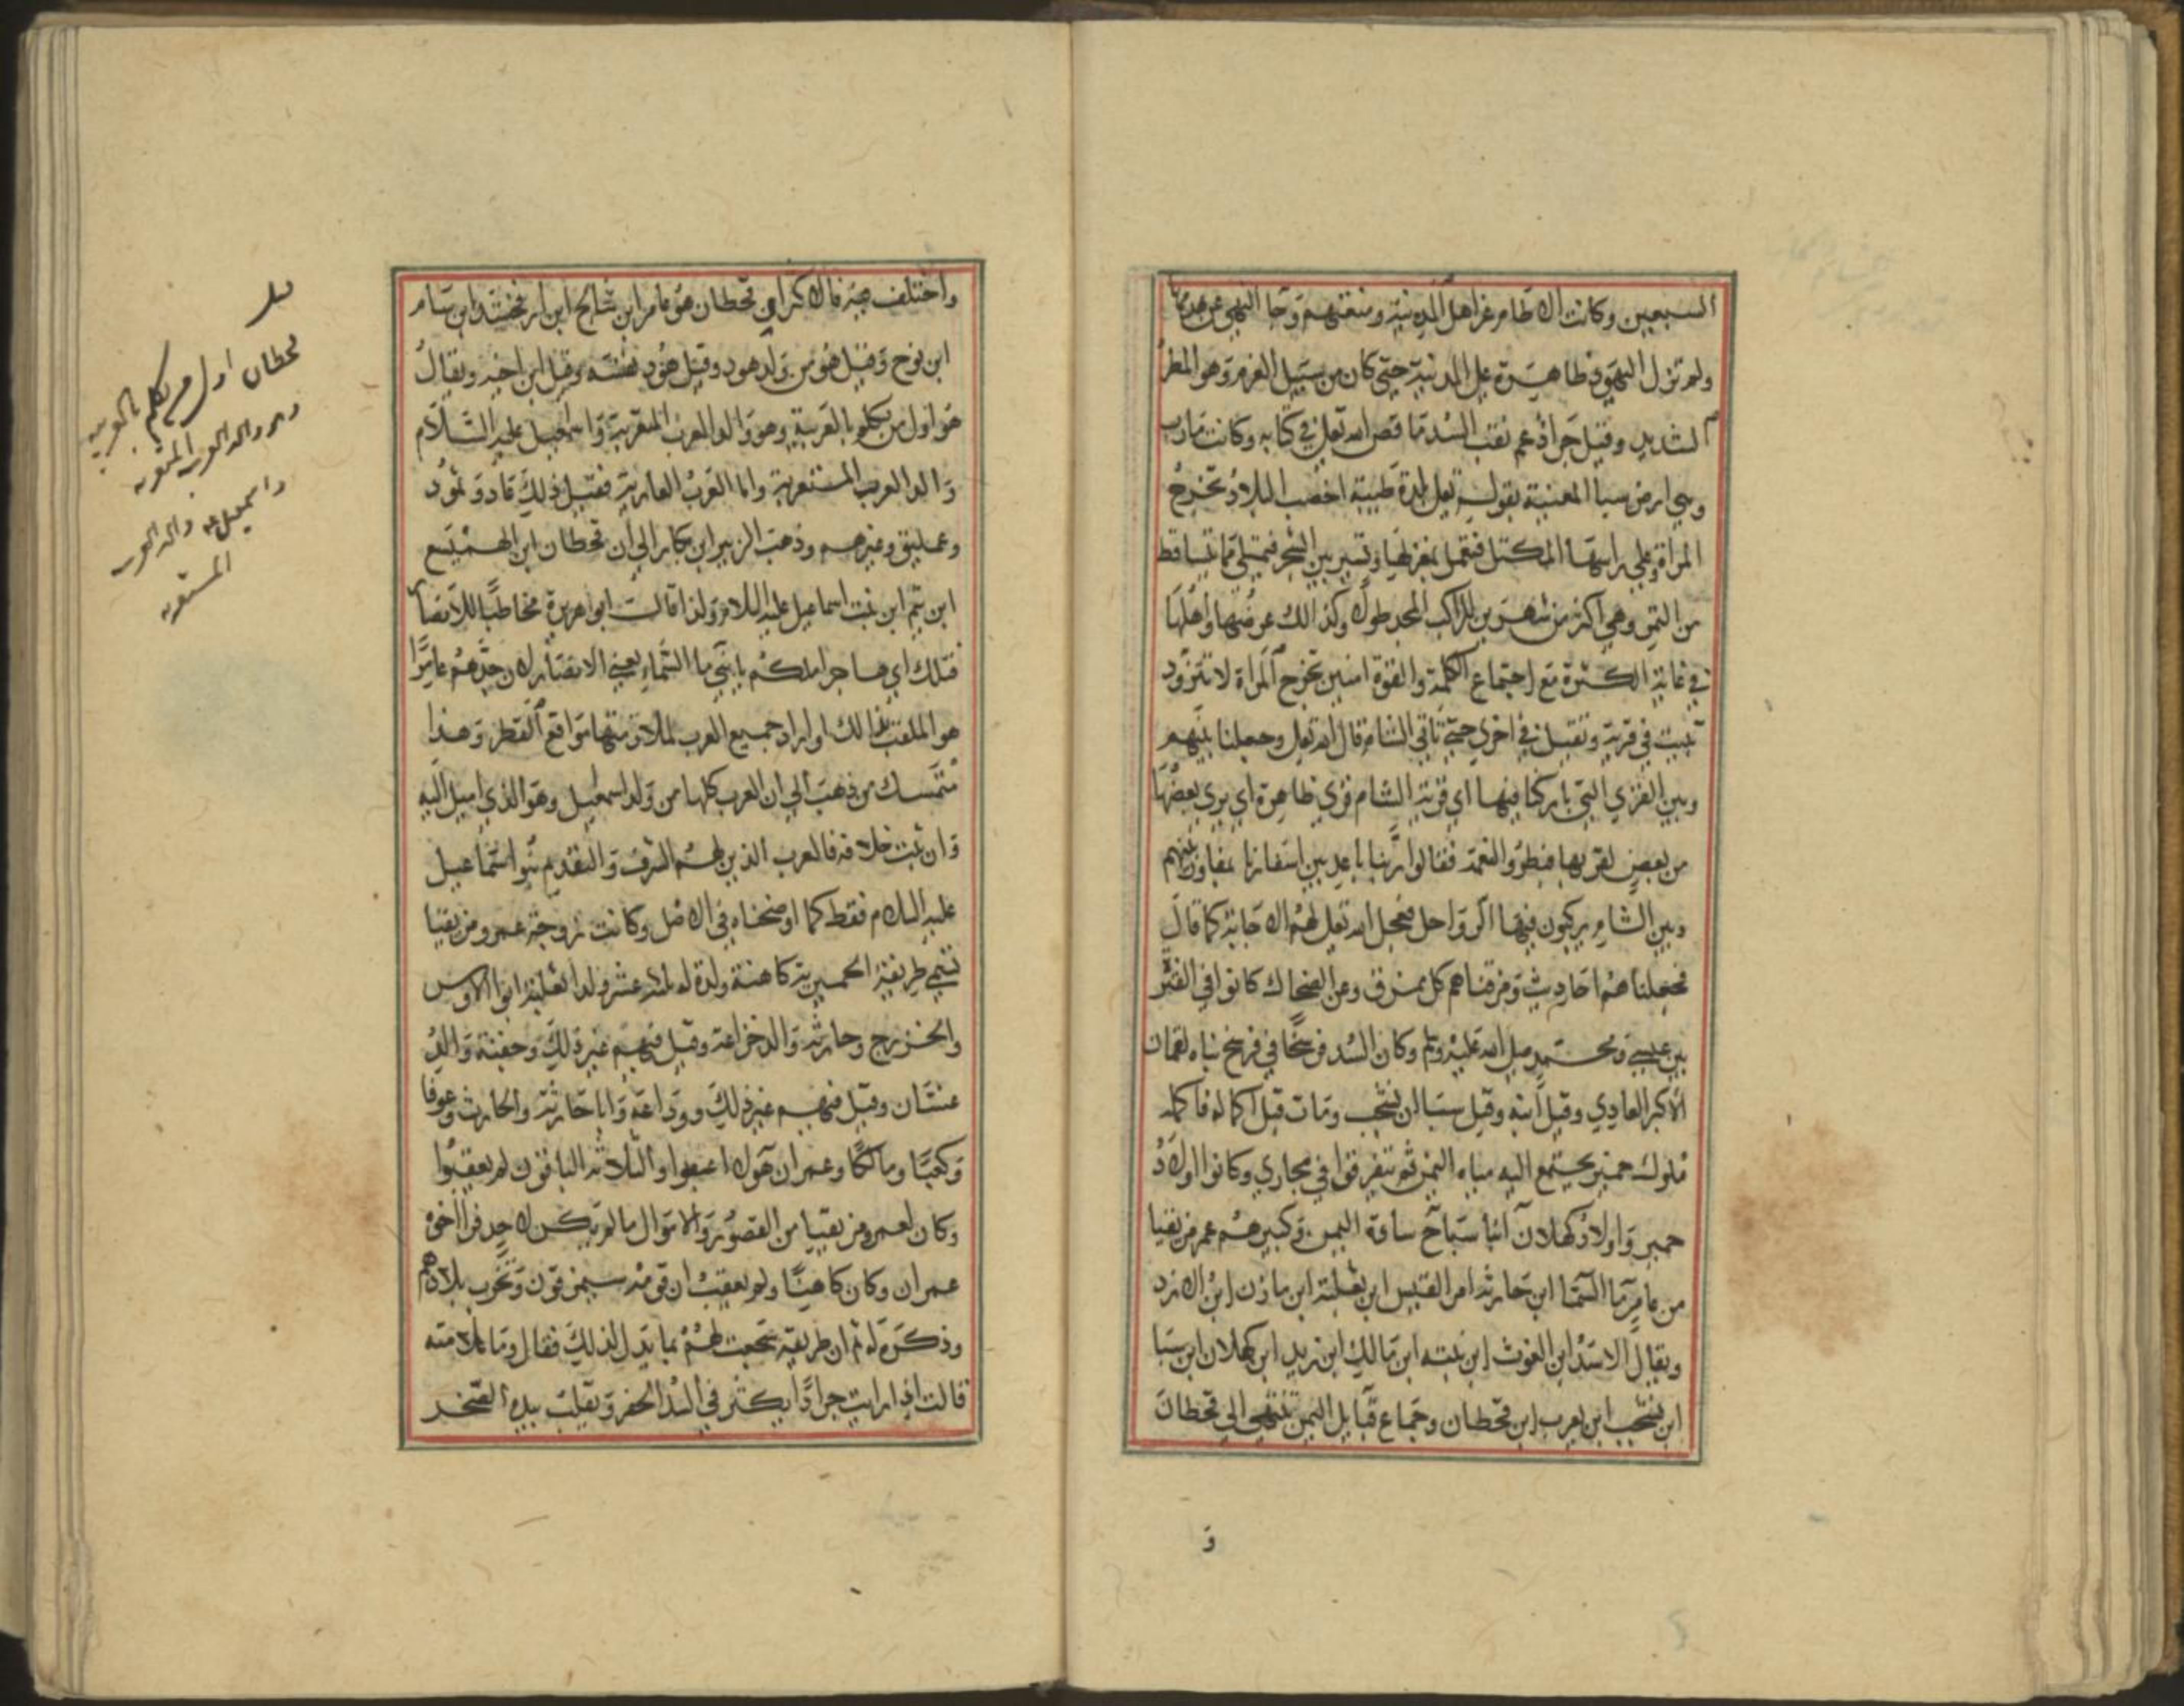 السبعين وكانت الاطام عز اهل المدينة ومنعتهم وجا النهي عن هدمها
ولم تزل اليهود ظاهرة على المدينة حتى كان من سيل العرم وهو المطر
الشديد وقيل جراذ عم نقب السد ما قص الله تعالى في كتابه وكانت مارب
وهي ارض سبا المعنية بقوله تعالى بلدة طيبة اخصب البلاد تخرج
المراة وعلى راسها المكتل فتعمل بمغزلها وتسير بين الشجر فيمتلى مما يتساقط
من الثمر وهي اكثر من شهرين للراكب المجد طولا وكذالك عرضها واهلها
في غاية الكثرة مع اجتماع الكلمة والقوة امنين تخرج المراة لا تتزود
تبيت في قرية وتقيل في اخري حتى تاتي الشام قال الله تعالى وجعلنا بينهم
وبين القري التي باركنا فيها اي قرية الشام قري ظاهرة اي يري بعضها
من بعض لقربها فبطروا النعمة فقالوا ربنا باعد بين اسفارنا بمفاوز بينهم
وبين الشام يركبون فيها الرواحل فعجل الله تعالى لهم الاجابة كما قال
فجعلناهم احاديث ومزقناهم كل ممزق وعن الضحاك كانوا في الفتر
بين عيسى ومحمد صلى الله عليه وسلم وكان السد فرسخا في فرسخ بناه لقمان
الاكبر العادي وقيل ابنه وقيل سبا ابن يشجب ومات قبل اكماله فاكمله
ملوك حمير يجتمع اليه مياه اليمن ثم تتفرق في مجاري وكانوا اولاد
حمير واولاد كهلان ابنا سبا سادة اليمن وكبيرهم عمر مزيقيا
من عامر ما السما ابن حارثة امر القيس ابن ثعلبة ابن مازن ابن الازد
ويقال الاسد ابن الغوث ابن نبته ابن مالك ابن زيد ابن كهلان ابن سبا
ابن يشجب ابن يعرب ابن قحطان وجماع قبايل اليمن تنتهي الى قحطان
و
واختلف فيه فالاكثر اي قحطان هو عامر ابن شالخ ابن ارفخشد ابن سام
ابن نوح وقيل هو من ولد هود وقيل هود نفسه وقيل ابن اخيه ويقال
هو اول من تكلم بالعربية وهو والد العرب المتعربة واسمعيل عليه السلام
والد العرب المستعربة واما العرب العاربة فقبل ذلك عاد وثمود
وعمليق وغيرهم وذهب الزبير ابن بكار الى ان قحطان ابن الهميسع
ابن تيم ابن نبت اسماعيل عليه السلام ولذا قالت ابو هريرة مخاطبا للانصار
فتلك اي هاجر املكم يا بني ما السماء يعني الانصار لان جدهم عامرا
هو الملقب بذالك او اراد جميع العرب لملازمتها مواقع القطر وهذا
متمسك من ذهب الى ان العرب كلها من ولد اسمعيل وهو الذي اميل اليه
وان ثبت خلافه فالعرب الذين لهم الشرف والتقديم بنو اسماعيل
عليه السلام فقط كما اوضحناه في الاصل وكانت زوجة عمرو مزيقيا
تسمى طريفة الحميرية كاهنة ولدة له ثلاثة عشر ولدا ثعلبة ابو الاوس
والخزرج وحارثة والد خزاعة وقيل فيهم غير ذلك وجفنة والد
غسان وقيل فيهم غير ذلك ووداعة وابا حارثة والحارث وعوفا
وكعبا ومالكا وعمران هولا اعقبوا والثلاثة الباقون لم يعقبوا
وكان لعمرو مزيقيا من القصور والاموال ما لم يكن لاحد فراي اخوه
عمران وكان كاهنا ولم يعقب ان قومه سيمزقون وتخرب بلادهم
وذكره له ثم ان طريفة سجعت لهم بما يدل لذلك فقال وما علامته
قالت اذا رايت جرذا يكثر في السد الحفر ويقلب بيده الصخر
قحطان اول من تكلم بالعربية
وهو والد العرب المتعربه
واسمعيل والد العرب
المستعربه